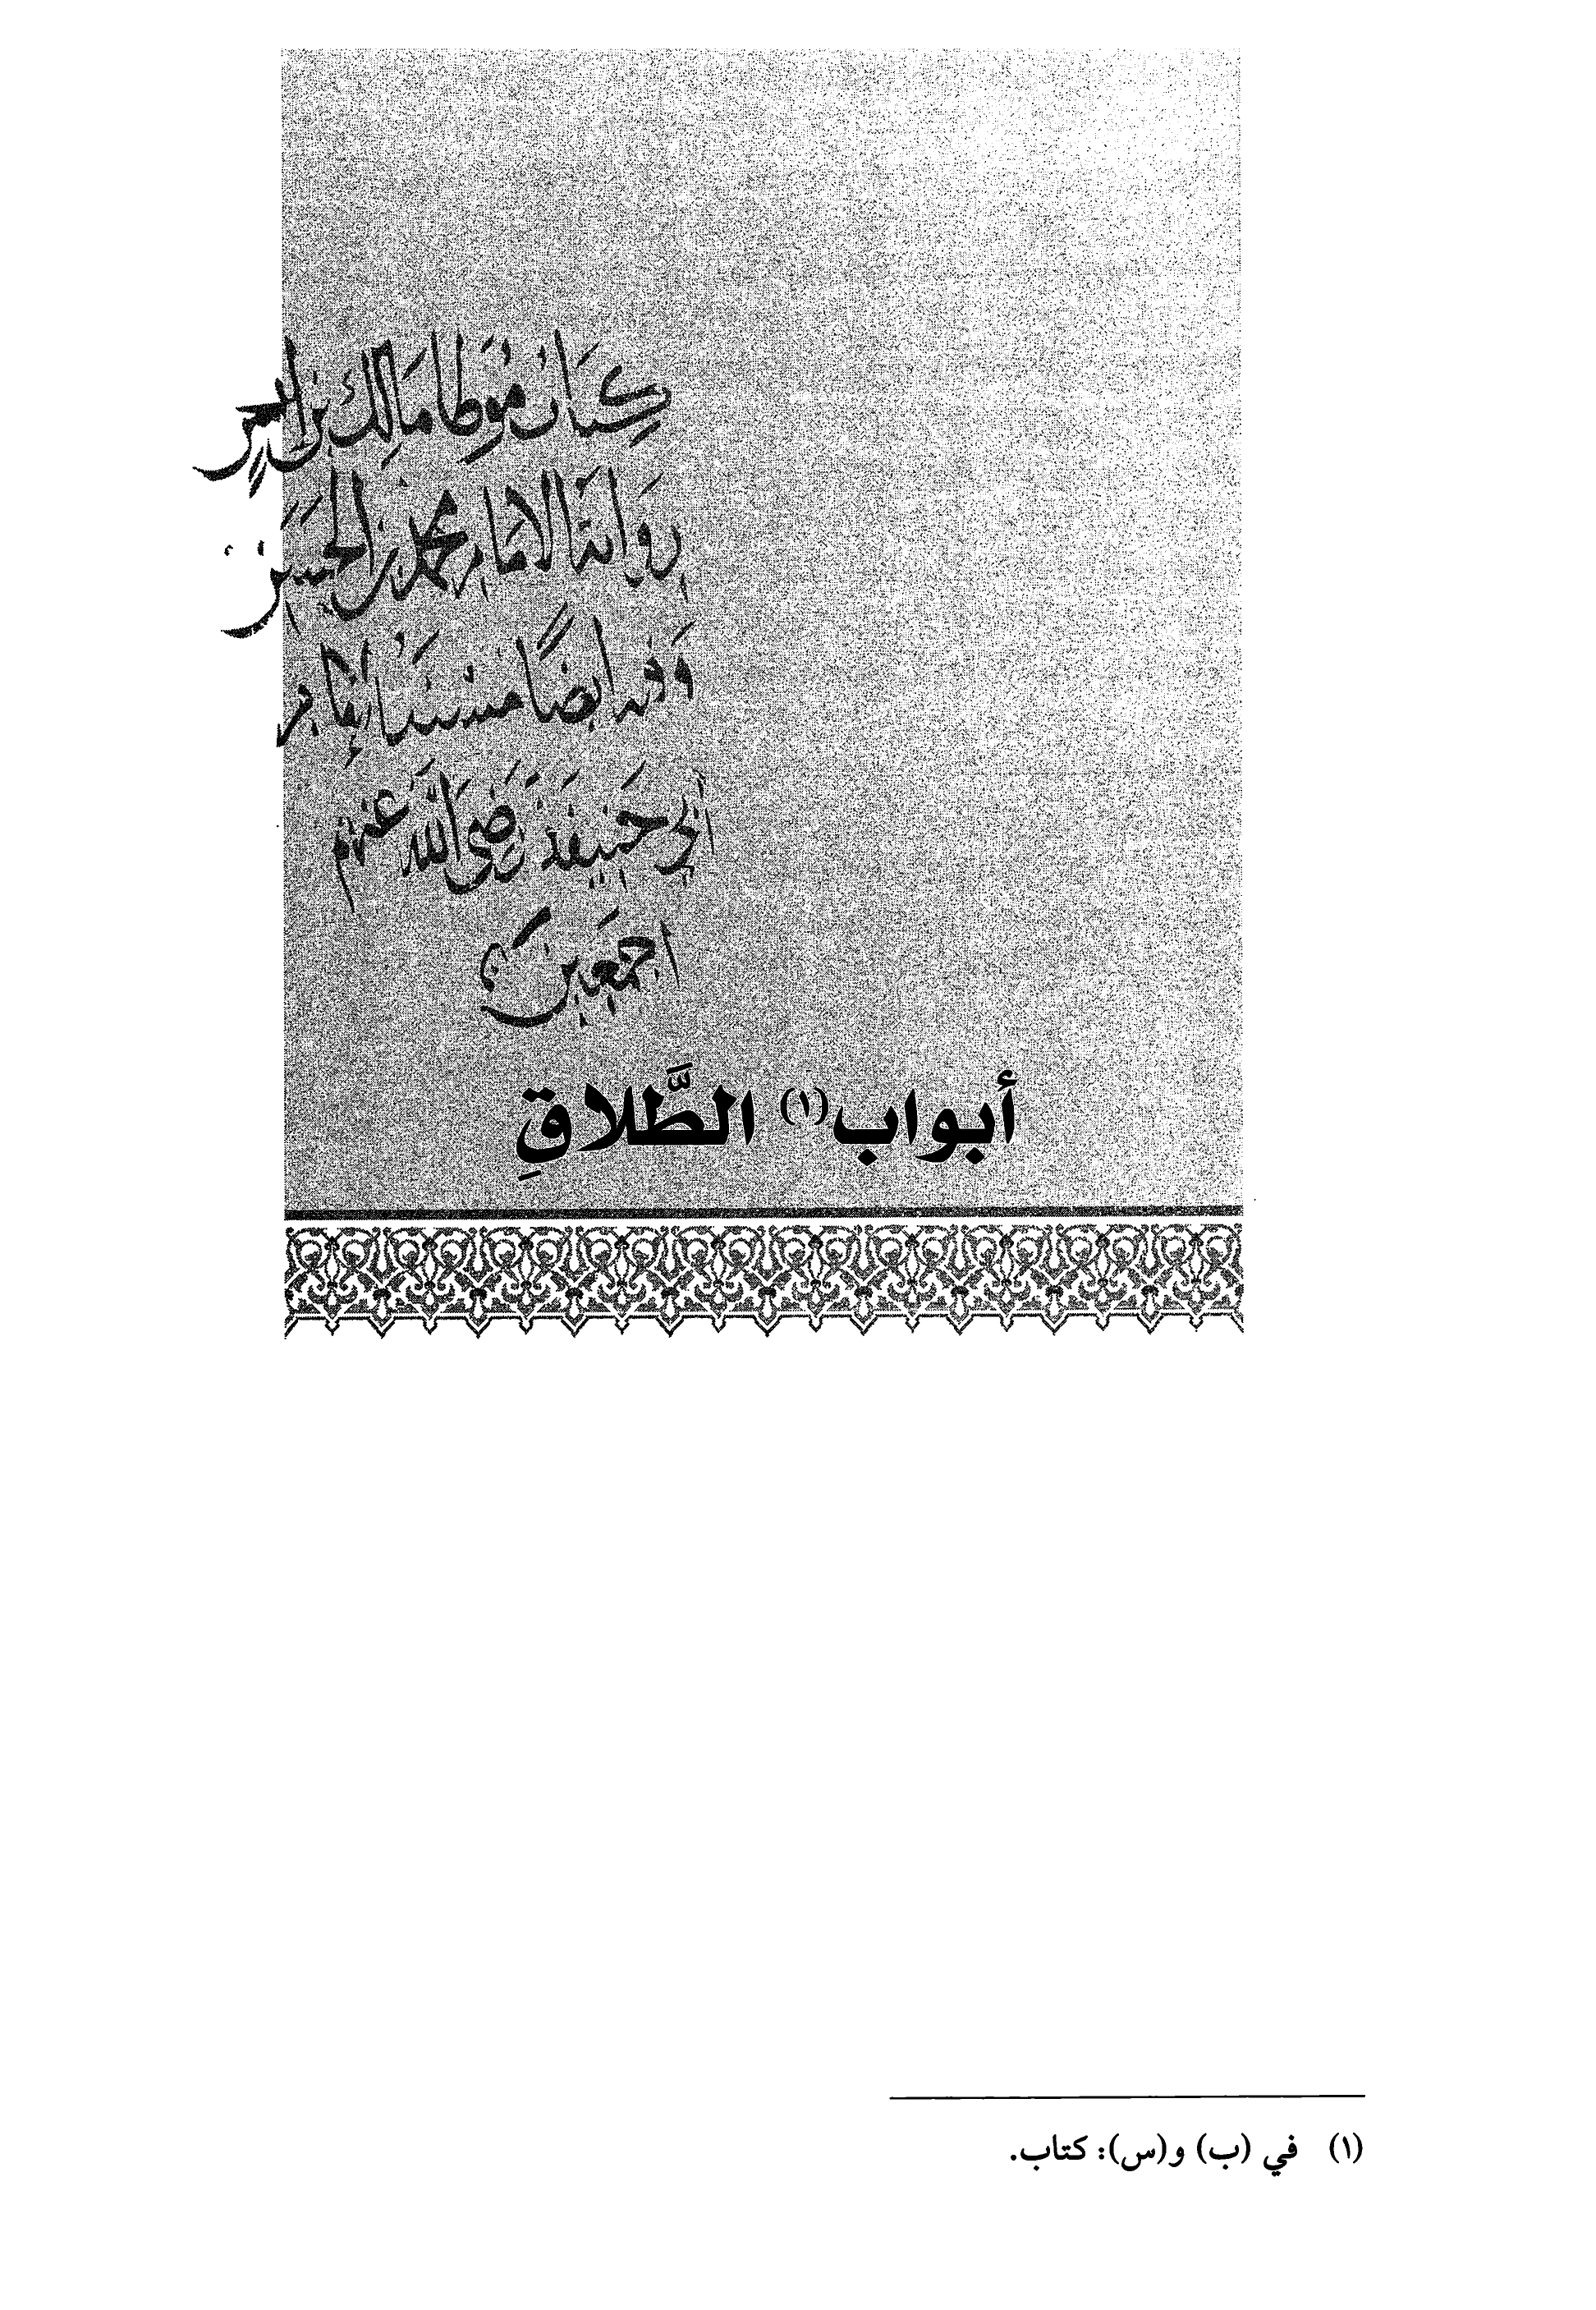 كتاب موطا مالك بن
رواية الامام محمد بن الحسن
وفيه ايضًا مسند
أبي حنيفة رضي الله عنهم
اجمعين
أبواب(١) الطَّلاقِ
(١) في (ب) و(س): كتاب.